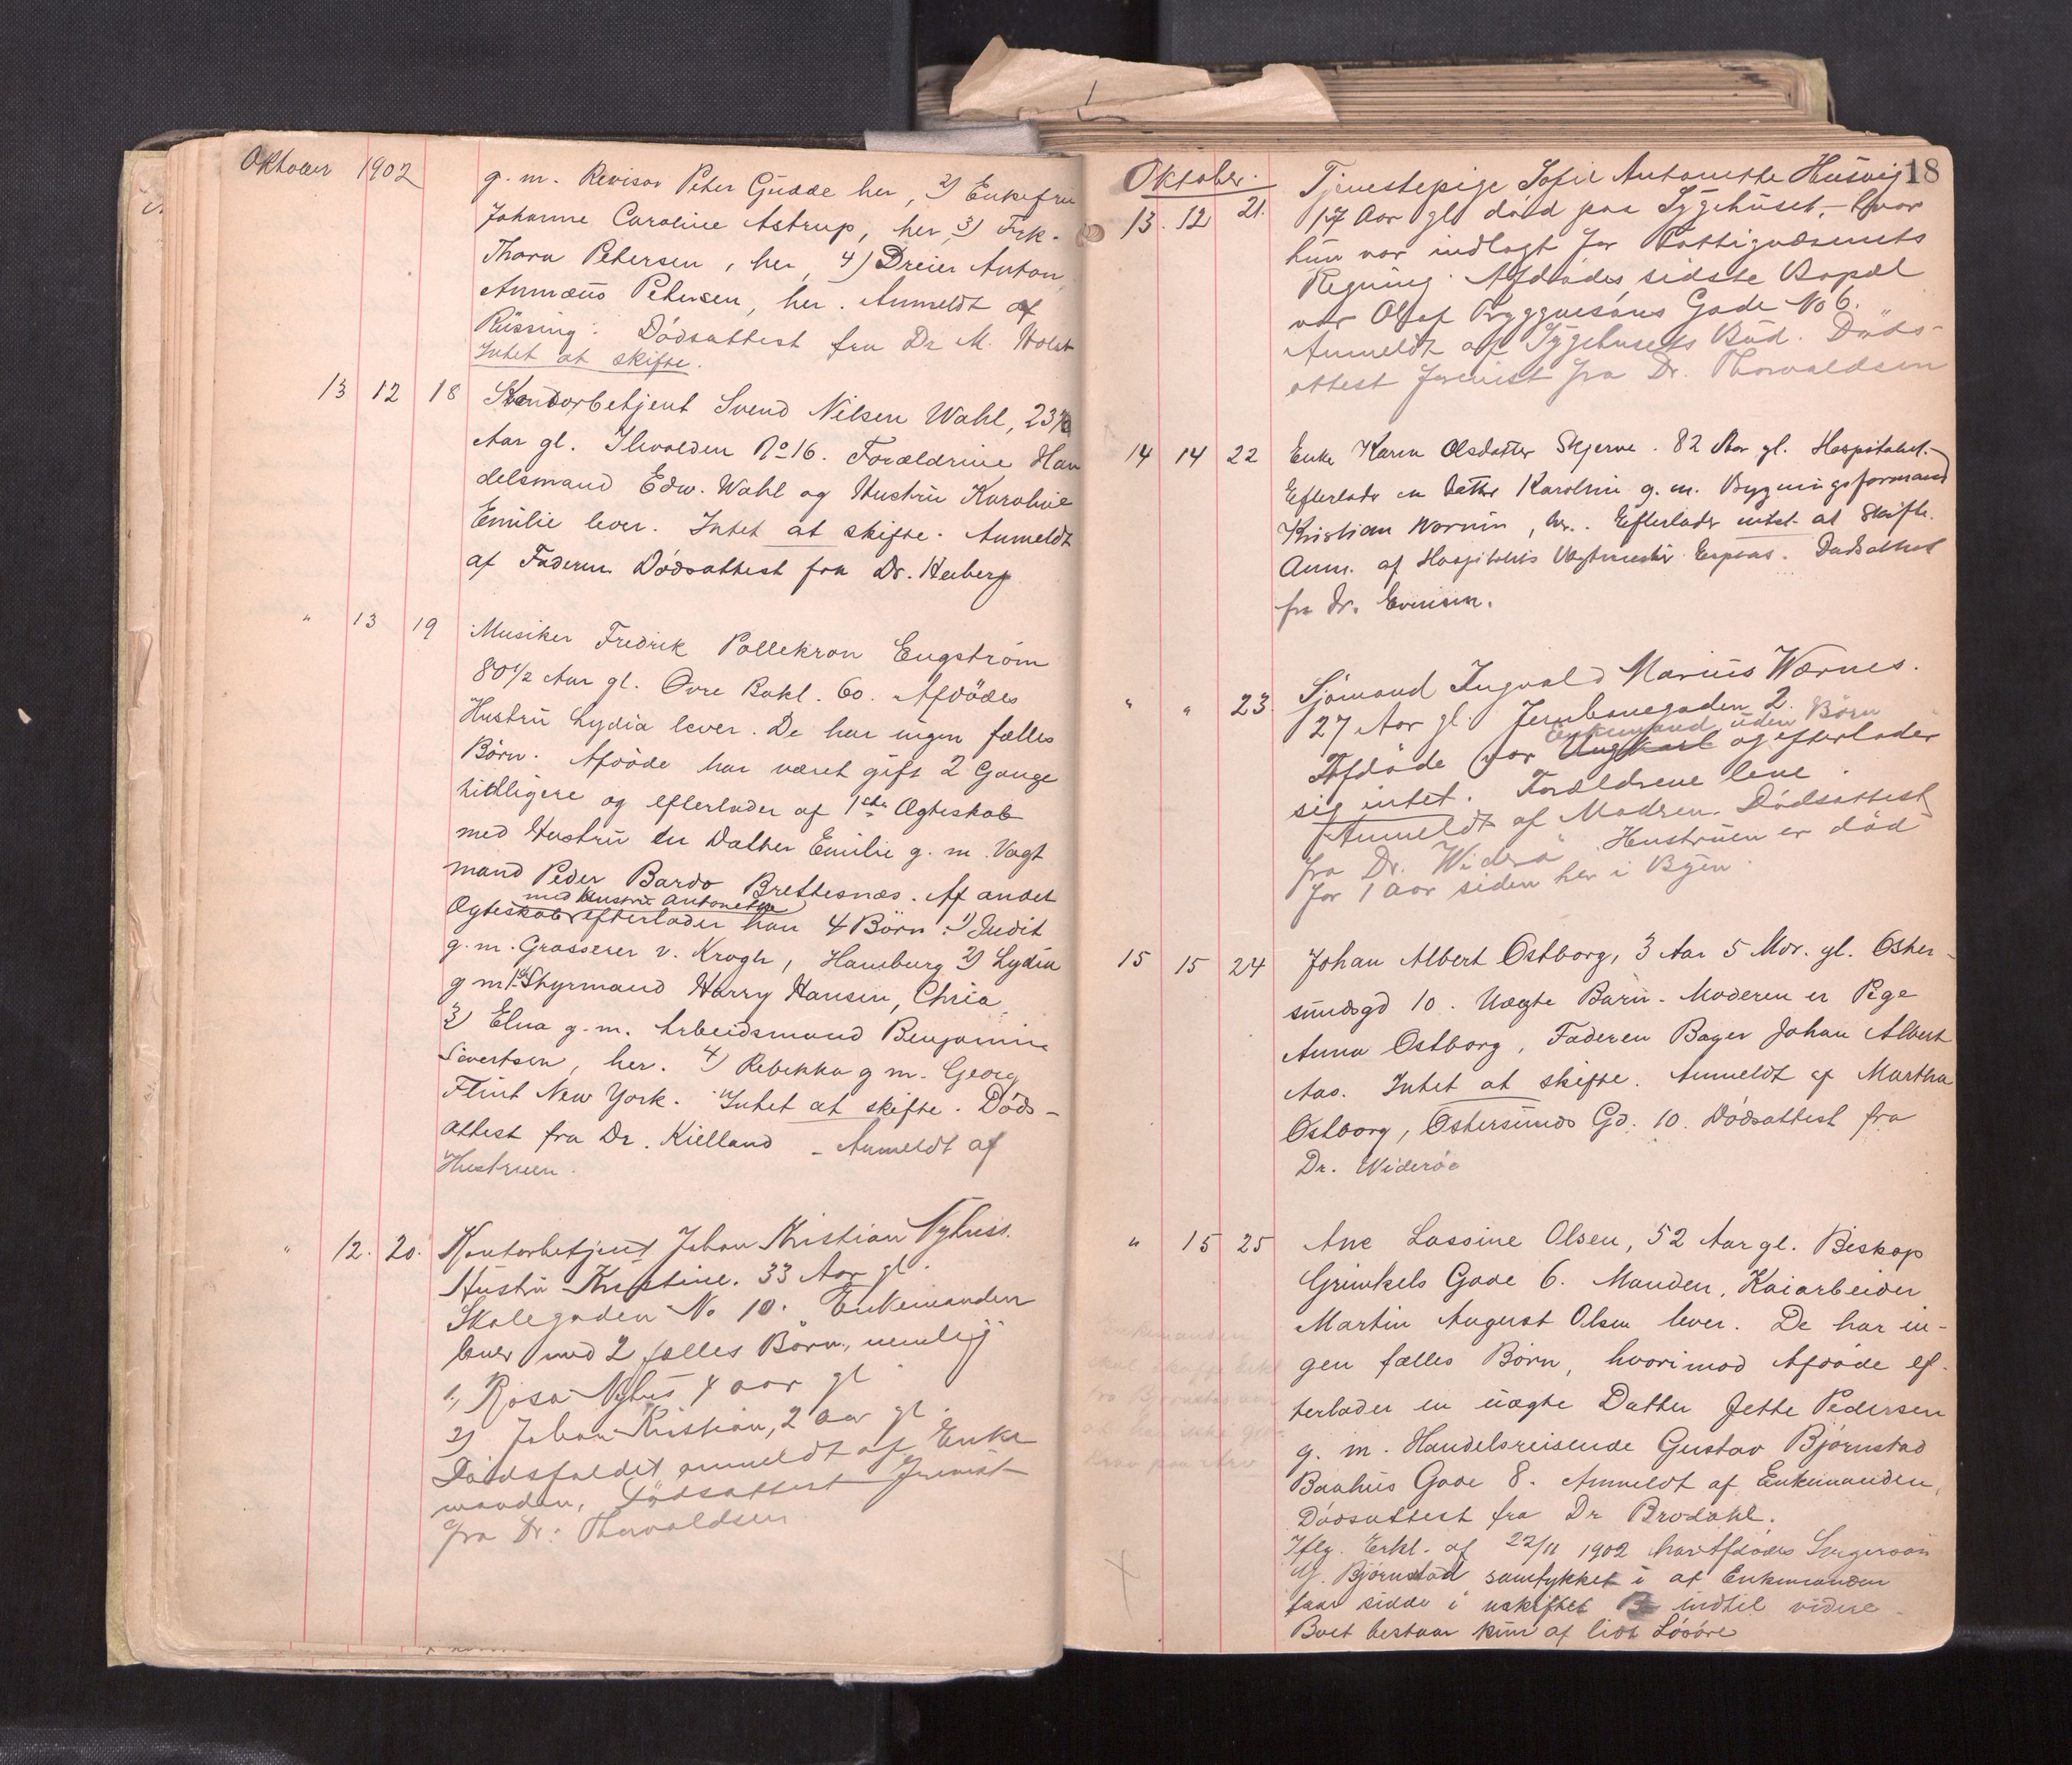 Oktober 1902
g. m. Revisor Peter Gudde her, 2) Enkefru
Johanne Caroline Astrup, her, 3) Frk.
Thora Petersen, her, 4) Dreier Anton
Petersen, her. Anmeldt af
Rüssing. Dödsattest fra Dr M. Holst
Intet at skifte.
13 12 18 Kontorbetjent Svend Nilsen Wahl, 23
Aar gl. Ilevolden No 16. Forældrene Han
delsmand Edw. Wahl og Hustru Karoline
Emilie lever. Intet at skifte. Anmeldt
af Faderen Dödsattest fra Dr. Heiberg
" 13 19 Musiker Fredrik Pallekron Engström
80 1/2 Aar gl. Øvre Bakl. 60. Afdödes
Hustru Lydia lever. De har ingen fælles
Börn. Afdöde har været gift 2 Gange
tidligere og efterlader af 1ste Ægteskab
med Hustru en Datter Emilie g. m. Vagt
mand Peder Bardo Brettesnæs. Af andet
med Hustru Antonette
Ægteskab efterlader han 4 Börn: 1) Judit
g. m. Grosserer v. Krogh, Hamburg 2) Lydia
g m 1ste Styrmand Harry Hansen, Chria
3) Elna g. m. Arbeidsmand Benjamin
Sivertsen, her. 4) Rebekka g m. Georg
Flint New York. Intet at skifte. Döds-
attest fra Dr. Kielland - Anmeldt af
Hustruen.
" 12. 20. Kontorbetjent Johan Kristian Nyhus's
Hustru Kristine. 33 Aar gl.
Skolegaden No 10. Enkemanden
lever med 2 fælles Börn, nemlig
1, Rosa Nyhus 4 aar gl
2) Johan Kristian, 2 Aar gl.
Dödsfaldet anmeldt af Enke
manden, Dödsattest forevist
fra Dr. Thorvaldsen
18
Oktober.
13. 12 21. Tjenestepige Sofie Antonette Husvig
17 Aar gl död paa Sygehuset, hvor
hun var indlagt for Fattigvæsenets
Regning. Afdödes sidste Bopæl
var Olaf Tryggvesöns Gade No 6.
Anmeldt af Sygehusets Bud. Döds-
attest forevist fra Dr. Thorvaldsen
14 14 22 Enke Karen Olsdatter Skjerve. 82 Aar gl. Hospitalet.
Efterlader en Datter Karoline g. m. Bygningsformand
Kristian , her. Efterlader intet at skifte.
Anm. af Hospitalets Vagtmester . Dødsattest
fra Dr. Evensen.
" " 23 Sjömand Ingvald Marius Wærnes.
27 Aar gl. Jernbanegaden 2.
Enkemand uden Börn
Afdöde var Ungkarl og efterlader
sig intet. Forældrene leve.
Anmeldt af Modren. Dödsattest
fra Dr. Wideröe Hustruen er död
for 1 aar siden her i Byen.
15 15 24 Johan Albert Ostborg, 3 Aar 5 Mdr. gl. Oster-
sundsgd 10. Uægte Barn. Moderen er Pige
Anna Ostborg, Faderen Bager Johan Albert
Aas. Intet at skifte. Anmeldt af Martha
Ostborg, Ostersunds Gd. 10. Dödsattest fra
Dr. Wideröe
" 15 25 Ane Lassine Olsen, 52 Aar gl. Biskop
Grimkels Gade 6. Manden, Kaiarbeider
Martin August Olsen lever. De har in-
gen fælles Börn, hvorimod Afdöde ef-
terlader en uægte Datter Jette Pedersen
g. m. Handelsreisende Gustav Björnstad
Baahus Gade 8. Anmeldt af Enkemanden,
Dödsattest fra Dr Brodahl.
Iflg. Erkl. af 22/11 1902 har Afdödes Svigersön
G. Björnstad samtykket i at Enkemanden
faar sidde i uskiftet Bo indtil videre.
Boet bestaar kun af lidt Lösöre
Enkemanden
skal skaffe Erkl
fra Björnstad om
at han ikke gjör
Krav paa Arv